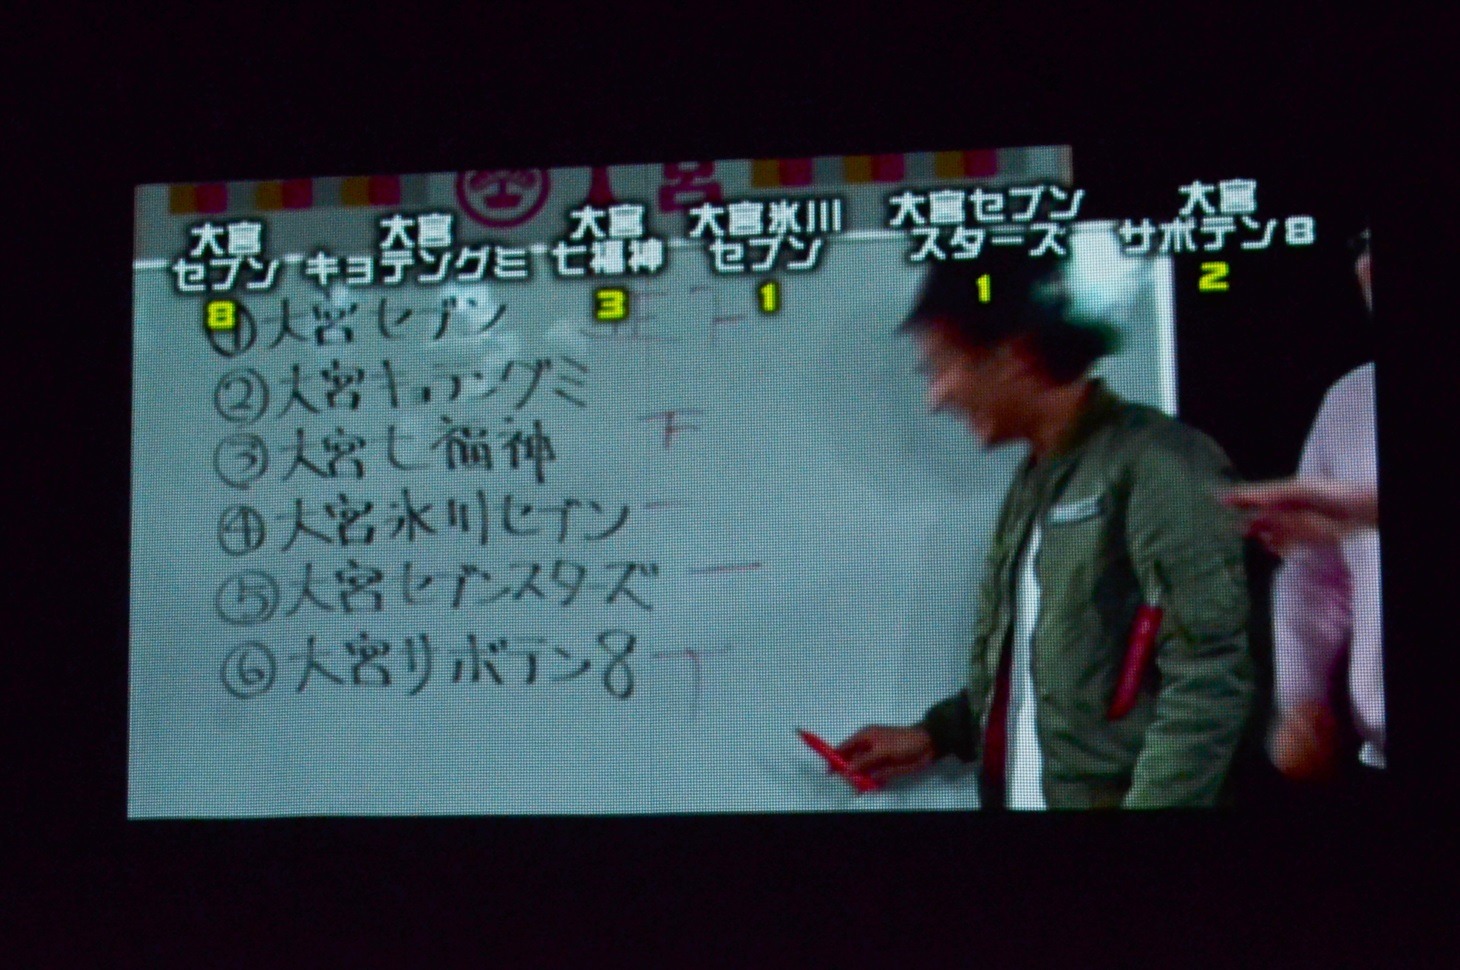 宮
大宮
セブン
8
大宮
キョテングミ
大宮
七福神
3
大宮氷川
セブン
1
大宮セブン
スターズ
1
大宮
サボテン8
2
①大宮セブン 正下
②大宮キョテングミ
③大宮七福神 下
④大宮氷川セブン 一
⑤大宮セブンスターズ 一
⑥大宮サボテン8 丅